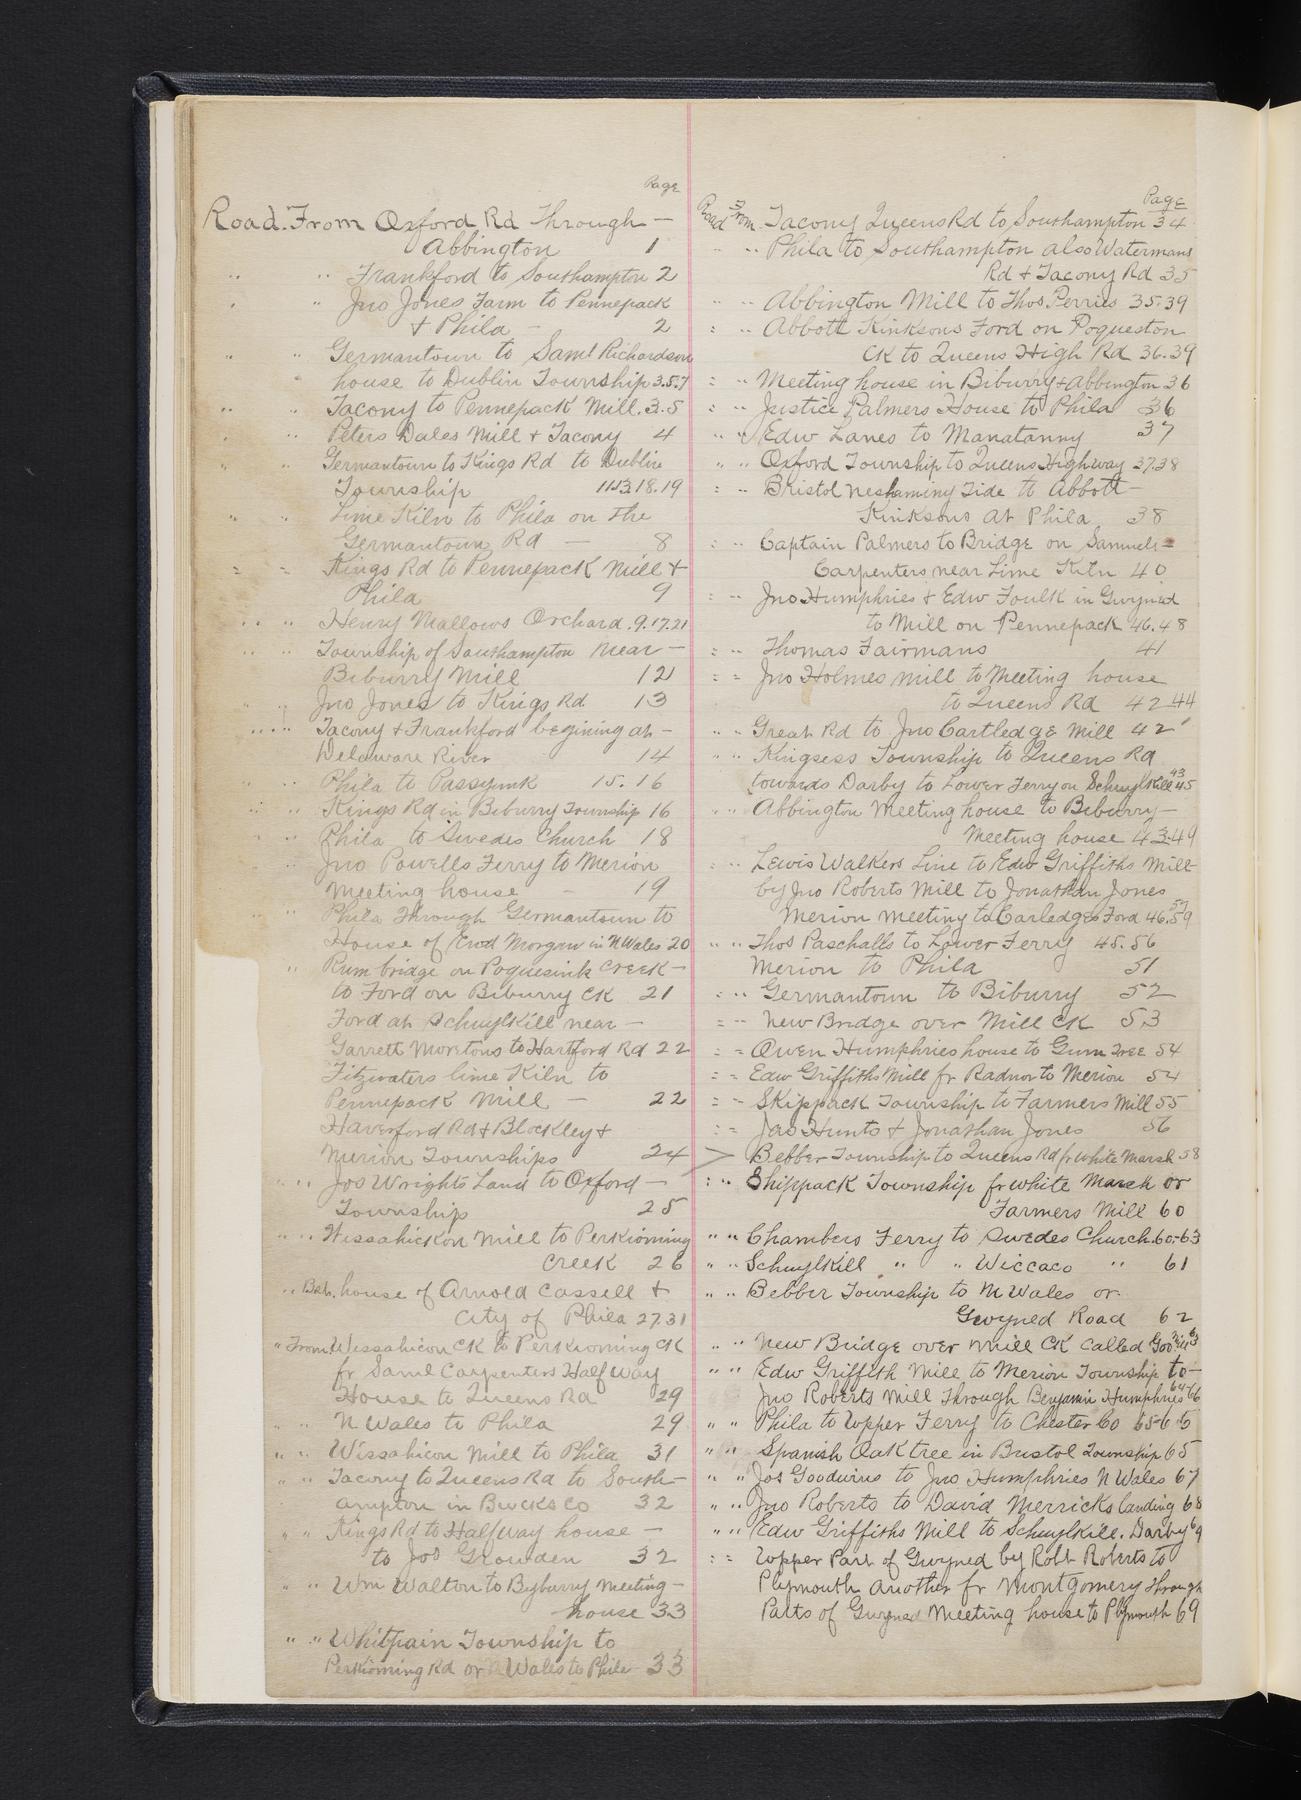 Page
Road. From Oxford Rd Through —
Abbington 1
" " Frankford to Southampton 2
" " Jno Jones Farm to Pennepack
& Phila — 2
" " Germantown to Saml Richardson
house to Dublin Township 3.5.7
" " Tacony to Pennepack Mill. 3.5
" " Peters Dales Mill & Tacony 4
" " Germantown to Kings Rd to Dublin
Township 11.13.18.19
" " Lime Kiln to Phila on the
Germantown Rd — 8
" " Kings Rd to Pennepack Mill &
Phila 9
" " Henry Mallows Orchard. 9.17.21
" " Township of Southampton near —
Biburry Mill 12
" " Jno Jones to Kings Rd 13
" " Tacony & Frankford begining at —
Delaware River 14
" " Phila to Passyunk 15.16
" " Kings Rd in Biburry Township 16
" " Phila to Swedes Church 18
" " Jno Powells Ferry to Merion
Meeting house — 19
" " Phila through Germantown to
House of Morgan in N Wales 20
" Rum bridge on Poquesink Creek —
to Ford on Biburry CK 21
Ford at Schuylkill near —
Garrett Moretons to Hartford Rd 22
Fitzwaters lime Kiln to
Pennepack Mill — 22
Haverford Rd & Blockley &
Merion Townships 24
" " Jos Wrights Land to Oxford —
Township 25
" " Wissahickon Mill to Perkioming
Creek 26
" Bet. house of Arnold Cassell &
City of Phila 27.31
" From Wissahicon CK to Perkioming CK
fr Saml Carpenters Half way
House to Queens Rd 29
" " N Wales to Phila 29
" " Wissahicon Mill to Phila 31
" " Tacony to Queens Rd to South-
ampton in Bucks Co 32
" " Kings Rd to Halfway house —
to Jos Growden 32
" " Wm Walton to Byburry Meeting —
house 33
" " Whitpain Township to
Perkioming Rd or N Wales to Phila 33
Page
Road From. Tacony Queens Rd to Southampton 34
" " Phila to Southampton also Watermans
Rd & Tacony Rd 35
" " Abbington Mill to Thos. Perries 35.39
" " Abbott Kinksons Ford on Poqueston
CK to Queens High Rd 36.39
" " Meeting house in Biburry & Abbington 36
" " Justice Palmers House to Phila 36
" " Edw Lanes to Manatanny 37
" " Oxford Township to Queens Highway 37.38
" " Bristol Neshaminy Tide to Abbott —
Kinksons at Phila 38
" " Captain Palmers to Bridge on Samuels =
Carpenters near Lime Kiln 40
" " Jno Humphries & Edw Foulk in Gwyned
to Mill on Pennepack 46.48
" " Thomas Fairmans 41
" " Jno Holmes Mill to Meeting house
to Queens Rd 42 44
" " Great Rd to Jno Cartledge Mill 42
" " Kingsess Township to Queens Rd
towards Darby to Lower Ferry on Schuylkill 43 45
" " Abbington Meeting house to Biburry —
Meeting house 43.49
" " Lewis Walkers Line to Edw Griffiths Mill
by Jno Roberts Mill to Jonathan Jones
Merion meeting to Carledges Ford 46.57 59
" " Thos Paschalls to Lower Ferry 45.56
Merion to Phila 51
" " Germantown to Biburry 52
" " New Bridge over Mill CK 53
" " Owen Humphries house to Gum Tree 54
" " Edw Griffiths Mill fr Radnor to Merion 54
" " Skippack Township to Farmers Mill 55
" " Jas Hunts & Jonathan Jones 56
> Bebber Township to Queens Rd fr White Marsh 58
" " Shippack Township fr white Marsh or
Farmers Mill 60
" " Chambers Ferry to Swedes Church. 60.63
" " Schuylkill " " Wiccaco " 61
" " Bebber Township to N Wales or
Gwyned Road 62
" " New Bridge over Mill CK called 63
" " Edw Griffith Mill to Merion Township to —
Jno Roberts Mill Through Benjamin Humphries 64 66
" " Phila to Upper Ferry to Chester 60 65-66
" " Spanish Oak tree in Bristol Township 65
" " Jos Goodwins to Jno Humphries N Wales 67
" " Jno Roberts to David Merricks landing 68
" " Edw Griffiths Mill to Schuylkill. Darby 69
" " Upper Part of Gwyned by Robt Roberts to
Plymouth another fr Montgomery through
Parts of Gwyned Meeting house to Plymouth 69